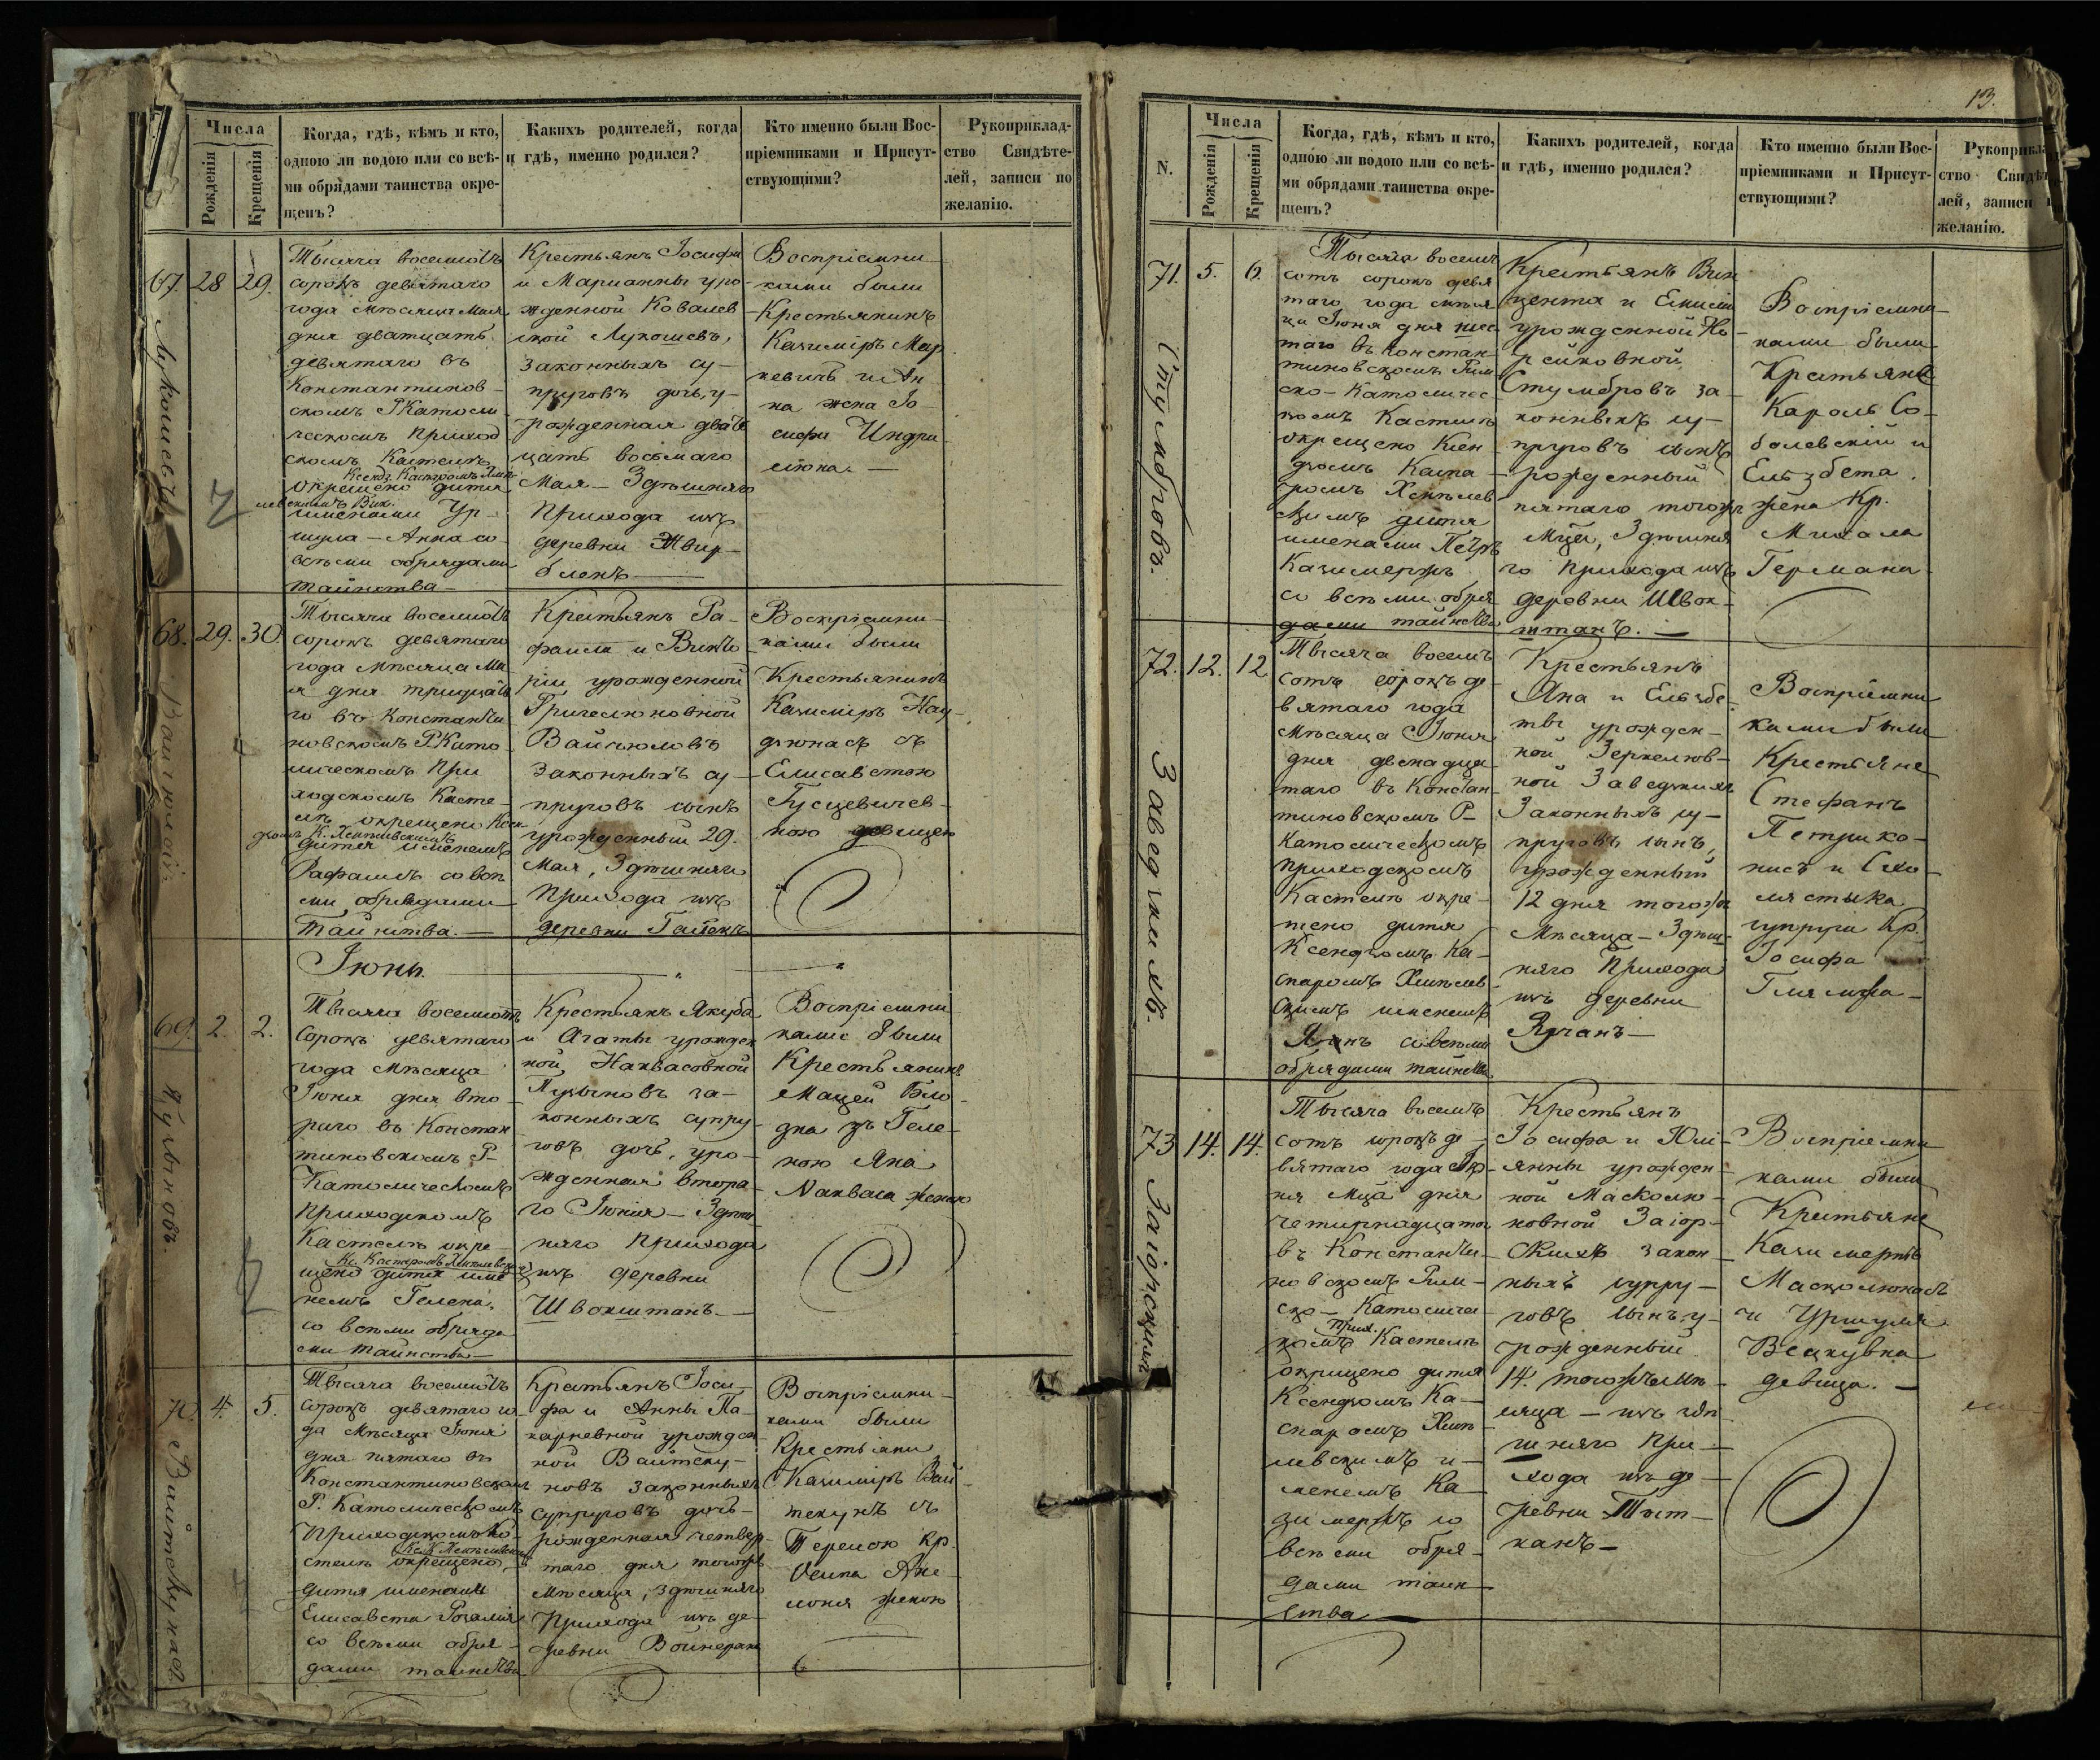 13.
Числа
Рожденія
Крещенія
Когда, гдѣ, кѣмъ и кто,
одною ли водою или со всѣ-
ми обрядами таинства окре-
щенъ?
Какихъ родителей, когда
и гдѣ, именно родился?
Кто именно были Вос-
пріемниками и Присут-
ствующими?
Рукоприклад-
ство Свидѣте-
лей, записи по
желанію.
67.
28
29.
Тысяча восемьсотъ
сорокъ девятаго
года мѣсяца Мая
дня дватцать
девятаго въ
Константинов-
скомъ РКатоли-
ческомъ Приход
скомъ Костелѣ
окрещено дитя
именами Ур-
шула-Анна со
всѣми обрядами
таинства-
Крестьянъ Іосифа
и Марианны уро-
жденной Ковалев
ской Лукошевъ,
законныхъ су-
пруговъ дочь, у-
рожденная двад
цать восьмаго
Мая- Здѣшняго
Прихода изъ
деревни Твир-
бленъ
Воспріемни
ками были
Крестьянинъ
Казиміръ Мар
кевичь и Ан
на жена Іо
сифа Индри
люнаса
68.
29.
30
Тысяча восемьсотъ
сорокъ девятаго
года мѣсяца Ма
я дня тридцата
го въ Константи
новскомъ РКато
лическомъ При
ходскомъ Косте-
лѣ окрещено Ксен-
дзомъ К.
дитя именемъ
Рафаилъ со всѣ
ми обрядами
таинства.-
Крестьянъ Ра-
фаила и Викто
ріи урожденной
Григелюновной
Вайчюловъ
законныхъ су-
пруговъ сынъ
урожденный 29.
Мая, Здѣшняго
Прихода изъ
деревни Гайлекъ
Воспріемни
ками были
Крестьянинъ
Казиміръ Нау-
дзюнасъ съ
Елисаветою
Гусцевичев-
ною девицею
Іюнь.
69.
2.
2.
Тысяча восемьсотъ
сорокъ девятаго
года Мѣсяца
Іюня дня вто-
раго въ Констан
тиновскомъ Р-
Католическомъ
приходскомъ
Костелѣ окре-
щено дитя име
немъ Гелена,
со всѣми обряда
ми таинства-
Крестьянъ Якуба
и Агаты урожден
ной Наквасовной
Пузыновъ за-
конныхъ супру
говъ дочь, уро-
жденная втора-
го Іюня-Здѣш
няго прихода
изъ деревни
Швокштанъ.-
Воспріемни
ками были
Крестьянинъ
Мацей Бло-
дна зъ Геле-
ною Яна
Накваса женою
70.
4.
5.
Тысяча восемьсотъ
сорокъ девятаго го
да Мѣсяца Іюня
дня пятаго въ
Константиновскомъ
Р. Католическомъ
Приходскомъ Ко
стелѣ окрещено,
дитя именами
Елисавета Розалія
со всѣми обря-
дами таинства
Крестьянъ Іоси-
фа и Анны По-
карневной урожден
ной Вайтеку-
новъ законныхъ
супруговъ дочь-
рожденная четвер
таго дня тогожъ
Мѣсяца, здѣшняго
Прихода изъ де-
ревни Войнеранъ
Воспріемни-
ками были
Крестьяни
Казиміръ Вай-
текунъ съ
Терезою Кр.
Осипа
женою
N.
Числа
Рожденія
Крещенія
Когда, гдѣ, кѣмъ и кто,
одною ли водою или со всѣ-
ми обрядами таинства окре-
щенъ?
Какихъ родителей, когда
и гдѣ, именно родился?
Кто именно были Вос-
пріемниками и Присут-
ствующими?
ство
лей, записи
желанію.
71.
5.
6.
Стумбровъ.
Тысяча восемь
сотъ сорокъ девя
таго года мѣся
ца Іюня дня шес
таго въ Констан-
тиновскомъ Рим
ско-Католичес
комъ Костелѣ
окрещено Ксен
дзомъ Каспа
ромъ
дитя
именами Петръ
Казимержъ
со всѣми обря
дами таинства
Крестьянъ Вин
цента и Емиліи
урожденной
Стумбровъ за-
конныхъ су-
пруговъ сынъ
рожденный
пятаго тогожъ
Мца, Здѣшня
го прихода изъ
деревни Швок-
штанъ.-
Воспріемни-
ками были
Крестьяне
Кароль Со-
болевскій и
Ельзбета
жена Кр.
Михала
Германа
72.
12.
12
Заведзкихъ.
Тысяча восемь
сотъ сорокъ де
вятаго года
Мѣсяца Іюня
дня двенадца
таго въ Констан
тиновскомъ Р-
Католическомъ
приходскомъ
Костелѣ окре-
щено дитя
Ксендзомъ Ка-
спаромъ
именемъ
Янъ со всѣми
обрядами таинства
Крестьянъ
Яна и Ельзбе-
ты урожден-
ной Зеркелюв-
ной Заведзкихъ
Законныхъ су-
пруговъ сынъ,
урожденный
12 дня тогожъ
Мѣсяца-Здѣш-
няго Прихода
изъ деревни
Воспріемни
ками были
Крестьяне
Стефанъ
Петрико-
нисъ и Схо-
лястыка
супруги Кр.
Іосифа
73
14.
14.
Заіорскихъ
Тысяча восемь
сотъ сорокъ де
вятаго года Ію-
ня Мца дня
четырнадцатаго
въ Константи-
новскомъ Рим-
ско-Католичес
комъ Костелѣ
окрещено дитя
Ксендзомъ Ка-
спаромъ
и-
менемъ Ка-
зимержъ со
всѣми обря-
дами таин-
ства
Крестьянъ
Іосифа и Юлі-
янны урожден-
ной Масколю-
новной Заіор-
скихъ закон
ныхъ супру-
говъ сынъ, у-
рожденный
14. тогожъ мѣ-
сяца-изъ здѣ
шняго При-
хода изъ де-
ревни Тыт-
канъ-
Воспріемни
ками были
Крестьяне
Казимержъ
Масколюнасъ
и Уршуля
девица.-